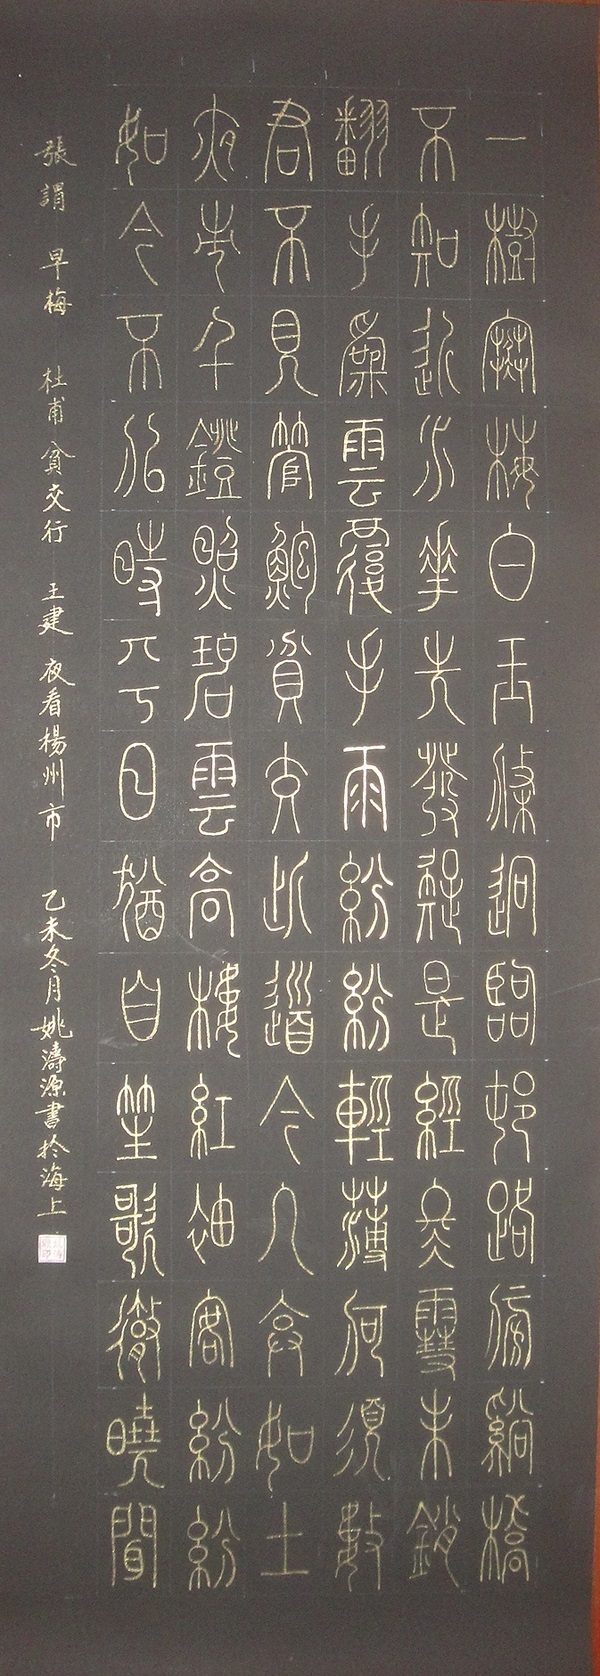 一樹寒梅白玉條迥臨邨路傍谿橋
不知近水花先發疑是經冬雪未銷
翻手爲雲覆手雨紛紛輕薄何須數
君不見管鮑貧交此道今人棄如土
夜市千鐙照碧雲高樓紅袖客紛紛
如今不似時平日猶自笙歌徹曉聞
張謂 早梅 杜甫 貧交行 王建 夜看楊州市 乙未冬月姚濤源書扵海上